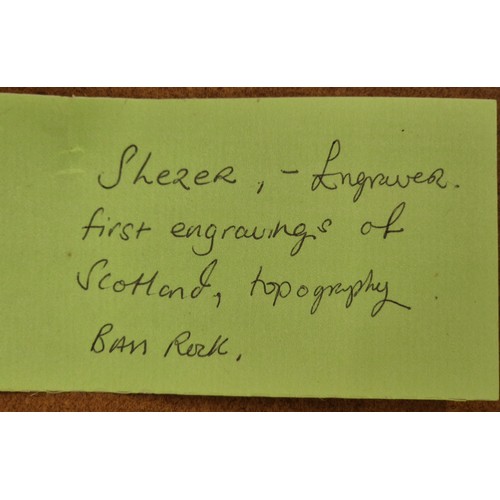 Slezer, - Engraver.
first engravings of
Scotland, topography
Bass Rock.